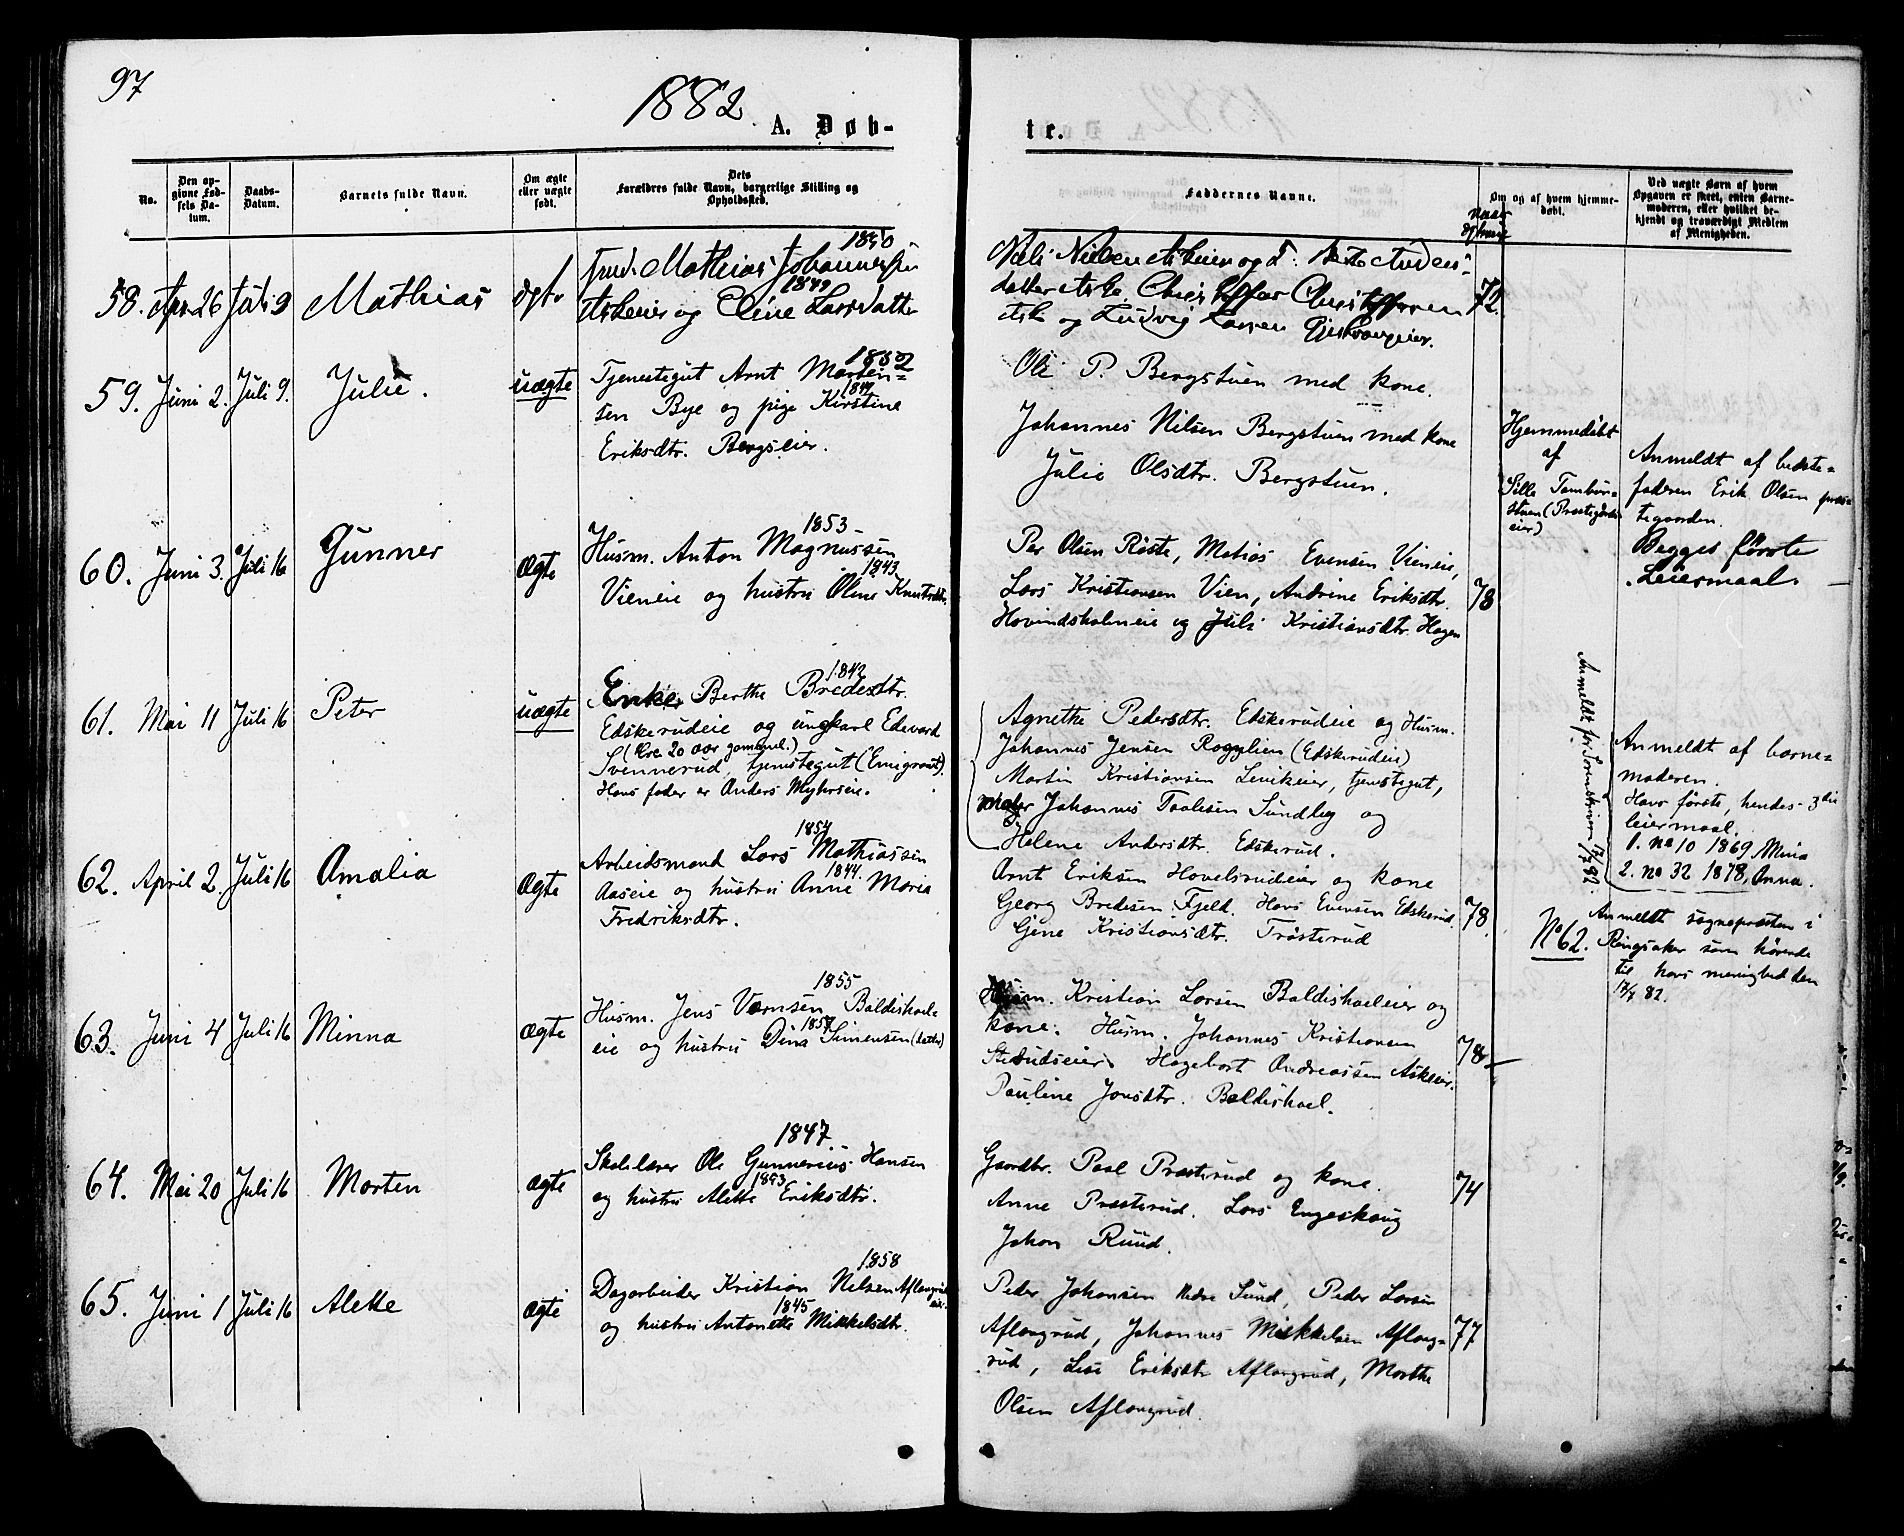 97
1882
A. Døb-
te.
No.
Den op-
givne Fød-
sels Da-
tum.
Daabs-
Datum.
Barnets fulde Navn.
Om ægte
eller uægte
født.
Dets
Forældres fulde Navn, borgerlige Stilling og
Opholdssted.
Faddernes Navne.
Om og af hvem hjemme-
døbt.
Ved uægte Barn af hvem
Opgaven er skeet, enten Barne-
moderen, eller hvilket be-
kjendt og troværdigt Medlem
af Menigheden.
58. Apr. 26 Juli 9 Mathias ægte
1850
Mathias Johannessen
1849
Askeier og Eline Larsdatter
Nils Nielsen Askeier og
datter Aske Christoffer Christoffersen 72
Aske og Ludvig Larsen
59. Juni 2. Juli 9. Julie. uægte
1852
Tjenestegut Arnt Morten-
1849
sen Bye og pige Kirstine
Eriksdtr. Bergseier.
Ole P. Bergstuen med kone.
Johannes Nilsen Bergstuen med kone
Julie Olsdtr. Bergstuen.
Hjemmedøbt
af
Sille Tambur-
stuen (Præstegårds-
eier)
Anmeldt af bedste-
faderen Erik Olsen præs-
tegaarden.
Begges første
Leiermaal.
60. Juni 3. Juli 16 Gunner Ægte
1853
Husm. Anton Magnussen
1843
Vieneie og hustru Oline Knutsdtr.
Per Olsen Røste, Matias Evensen Vieneie,
Lars Kristiansen Vien, Andrine Eriksdtr. 78
Hovindsholmeie og Juli Kristiansdtr. Hagen
61. Mai 11 Juli 16 Peter uægte
1842
Enke Berthe Bredesdtr.
Edskerudeie og ungkarl Edevard
(Cre. 20 aar gammel.)
Svennerud, tjenestegut (Emigrant).
Hans fader er Anders Myhrseie.
Agnethe Pedersdtr. Edskerudeie og Husm.
Johannes Jensen Roggelien (Edskerudeie)
Martin Kristiansen Lenikeier, tjenstegut,
Johannes Paalsen Sundby og
Helene Andersdtr. Edskerud.
Anmeldt for Sorenskriver 17/7 82.
Anmeldt af barne-
moderen.
Hans første, hendes 3die
leiermaal.
1. no 10 1869, Mina
2. no 32 1878, Anna.
62. April 2. Juli 16 Amalia Ægte
1854
Arbeidsmand Lars Mathiassen
1844.
Aaseie og hustru Anne Maria
Fredriksdtr.
Arnt Eriksen Hovelsrudeier og kone
Georg Bredesen Fjeld. Hans Evensen Edskerud. 78.
Gine Kristiansdtr. Trøsterud
No 62.
Anmeldt sognepræsten i
Ringsaker som hørende
til hans menighed den
17/7 82.
63. Juni 4 Juli 16 Minna ægte
1855
Husm. Jens Varnsen Baldishoel-
1857
eie og hustru Dina Simensen (datter)
Husm. Kristian Larsen Baldishoeleier og
kone. Husm. Johannes Kristiansen
78
Stensrudseier. Hagebart Andreassen Askeier.
Pauline Jonsdtr. Baldishoel.
64. Mai 20 Juli 16 Morten ægte
1847
Skolelærer Ole Gunnerius Hansen
1853
og hustru Alette Eriksdtr.
Gaardbr. Paal Præsterud og kone.
Anne Præsterud. Lars Engeskaug 74
Johan Ruud.
65. Juni 1 Juli 16 Alette ægte
1858
Dagarbeider Kristian Nelsen Aflangrud-
1845
og hustru Antonette Mikkelsdtr.
Peder Johansen Nedre Sund, Peder Larsen
Aflangrud, Johannes Mikkelsen Aflang- 77
rud, Lise Eriksdtr Aflangrud, Marthe
Olsen Aflangrud.